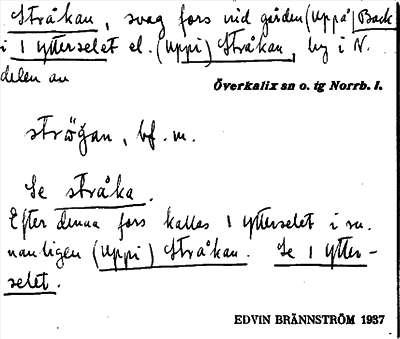 Stråkan, svag fors vid gården (Uppå) Back
i 1 Ytterselet el. (Uppi) Stråkan, by i N.
delen av
Överkalix sn o. tg Norrb. l.
strö̆ğan, bf. m.
Se stråka.
Efter denna fors kallas 1 Ytterselet i sn.
vanligen (Uppi) Stråkan. Se 1 Ytter-
selet.
EDVIN BRÄNNSTRÖM 1937